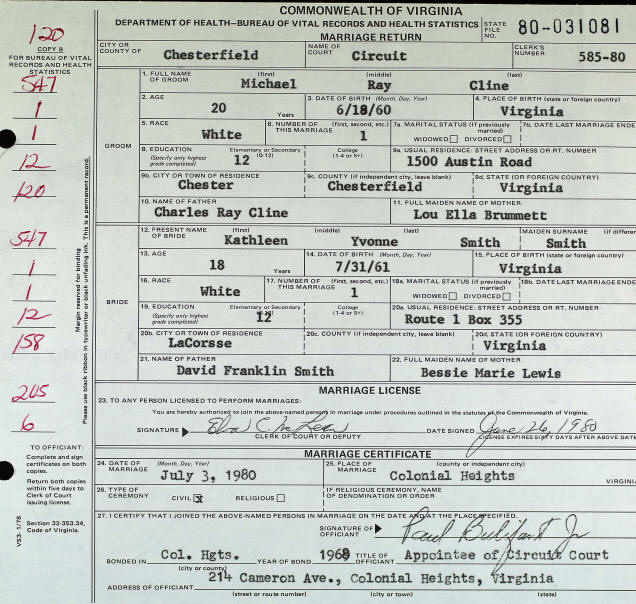 COMMONWEALTH OF VIRGINIA
DEPARTMENT OF HEALTH—BUREAU OF VITAL RECORDS AND HEALTH STATISTICS
MARRIAGE RETURN
STATE FILE NO. 80-031081
120
COPY B
FOR BUREAU OF VITAL RECORDS AND HEALTH STATISTICS
547
1
1
12
120
547
1
1
12
158
205
6
Margin reserved for binding
Please use black ribbon in typewriter or black unfading ink. This is a permanent record.
TO OFFICIANT:
Complete and sign certificates on both copies.
Return both copies within five days to Clerk of Court issuing license.
Section 32-353.34, Code of Virginia.
VS3- 1/78
CITY OR COUNTY OF Chesterfield NAME OF COURT Circuit CLERK'S NUMBER 585-80
GROOM
1. FULL NAME OF GROOM (first) (middle) (last)
Michael Ray Cline
2. AGE 20 Years 3. DATE OF BIRTH (Month, Day, Year) 6/18/60 4. PLACE OF BIRTH (state or foreign country) Virginia
5. RACE White 6. NUMBER OF THIS MARRIAGE (first, second, etc.) 1 7a. MARITAL STATUS (if previously married) WIDOWED DIVORCED 7b. DATE LAST MARRIAGE ENDE
8. EDUCATION (Specify only highest grade completed) Elementary or Secondary (0-12) 12 College (1-4 or 5+) 9a. USUAL RESIDENCE: STREET ADDRESS OR RT. NUMBER 1500 Austin Road
9b. CITY OR TOWN OF RESIDENCE Chester 9c. COUNTY (if independent city, leave blank) Chesterfield 9d. STATE (OR FOREIGN COUNTRY) Virginia
10. NAME OF FATHER Charles Ray Cline 11. FULL MAIDEN NAME OF MOTHER Lou Ella Brummett
BRIDE
12. PRESENT NAME OF BRIDE (first) (middle) (last) MAIDEN SURNAME (if differe
Kathleen Yvonne Smith Smith
13. AGE 18 Years 14. DATE OF BIRTH (Month, Day, Year) 7/31/61 15. PLACE OF BIRTH (state or foreign country) Virginia
16. RACE White 17. NUMBER OF THIS MARRIAGE (first, second, etc.) 1 18a. MARITAL STATUS (if previously married) WIDOWED DIVORCED 18b. DATE LAST MARRIAGE ENDE
19. EDUCATION (Specify only highest grade completed) Elementary or Secondary 12 College (1-4 or 5+) 20a. USUAL RESIDENCE: STREET ADDRESS OR RT. NUMBER Route 1 Box 355
20b. CITY OR TOWN OF RESIDENCE LaCorsse 20c. COUNTY (if independent city, leave blank) 20d. STATE (OR FOREIGN COUNTRY) Virginia
21. NAME OF FATHER David Franklin Smith 22. FULL MAIDEN NAME OF MOTHER Bessie Marie Lewis
MARRIAGE LICENSE
23. TO ANY PERSON LICENSED TO PERFORM MARRIAGES:
You are hereby authorized to join the above-named persons in marriage under procedures outlined in the statutes of the Commonwealth of Virginia.
SIGNATURE DATE SIGNED June 26, 1980
CLERK OF COURT OR DEPUTY LICENSE EXPIRES SIXTY DAYS AFTER ABOVE DATE
MARRIAGE CERTIFICATE
24. DATE OF MARRIAGE (Month, Day, Year) July 3, 1980 25. PLACE OF MARRIAGE (county or independent city) Colonial Heights VIRGINI
26. TYPE OF CEREMONY CIVIL X RELIGIOUS IF RELIGIOUS CEREMONY, NAME OF DENOMINATION OR ORDER
27. I CERTIFY THAT I JOINED THE ABOVE-NAMED PERSONS IN MARRIAGE ON THE DATE AND AT THE PLACE SPECIFIED.
SIGNATURE OF OFFICIANT Paul Bulifant Jr
BONDED IN Col. Hgts. YEAR OF BOND 1968 TITLE OF OFFICIANT Appointee of Circuit Court
(city or county)
ADDRESS OF OFFICIANT 214 Cameron Ave., Colonial Heights, Virginia
(street or route number) (city or town) (state)